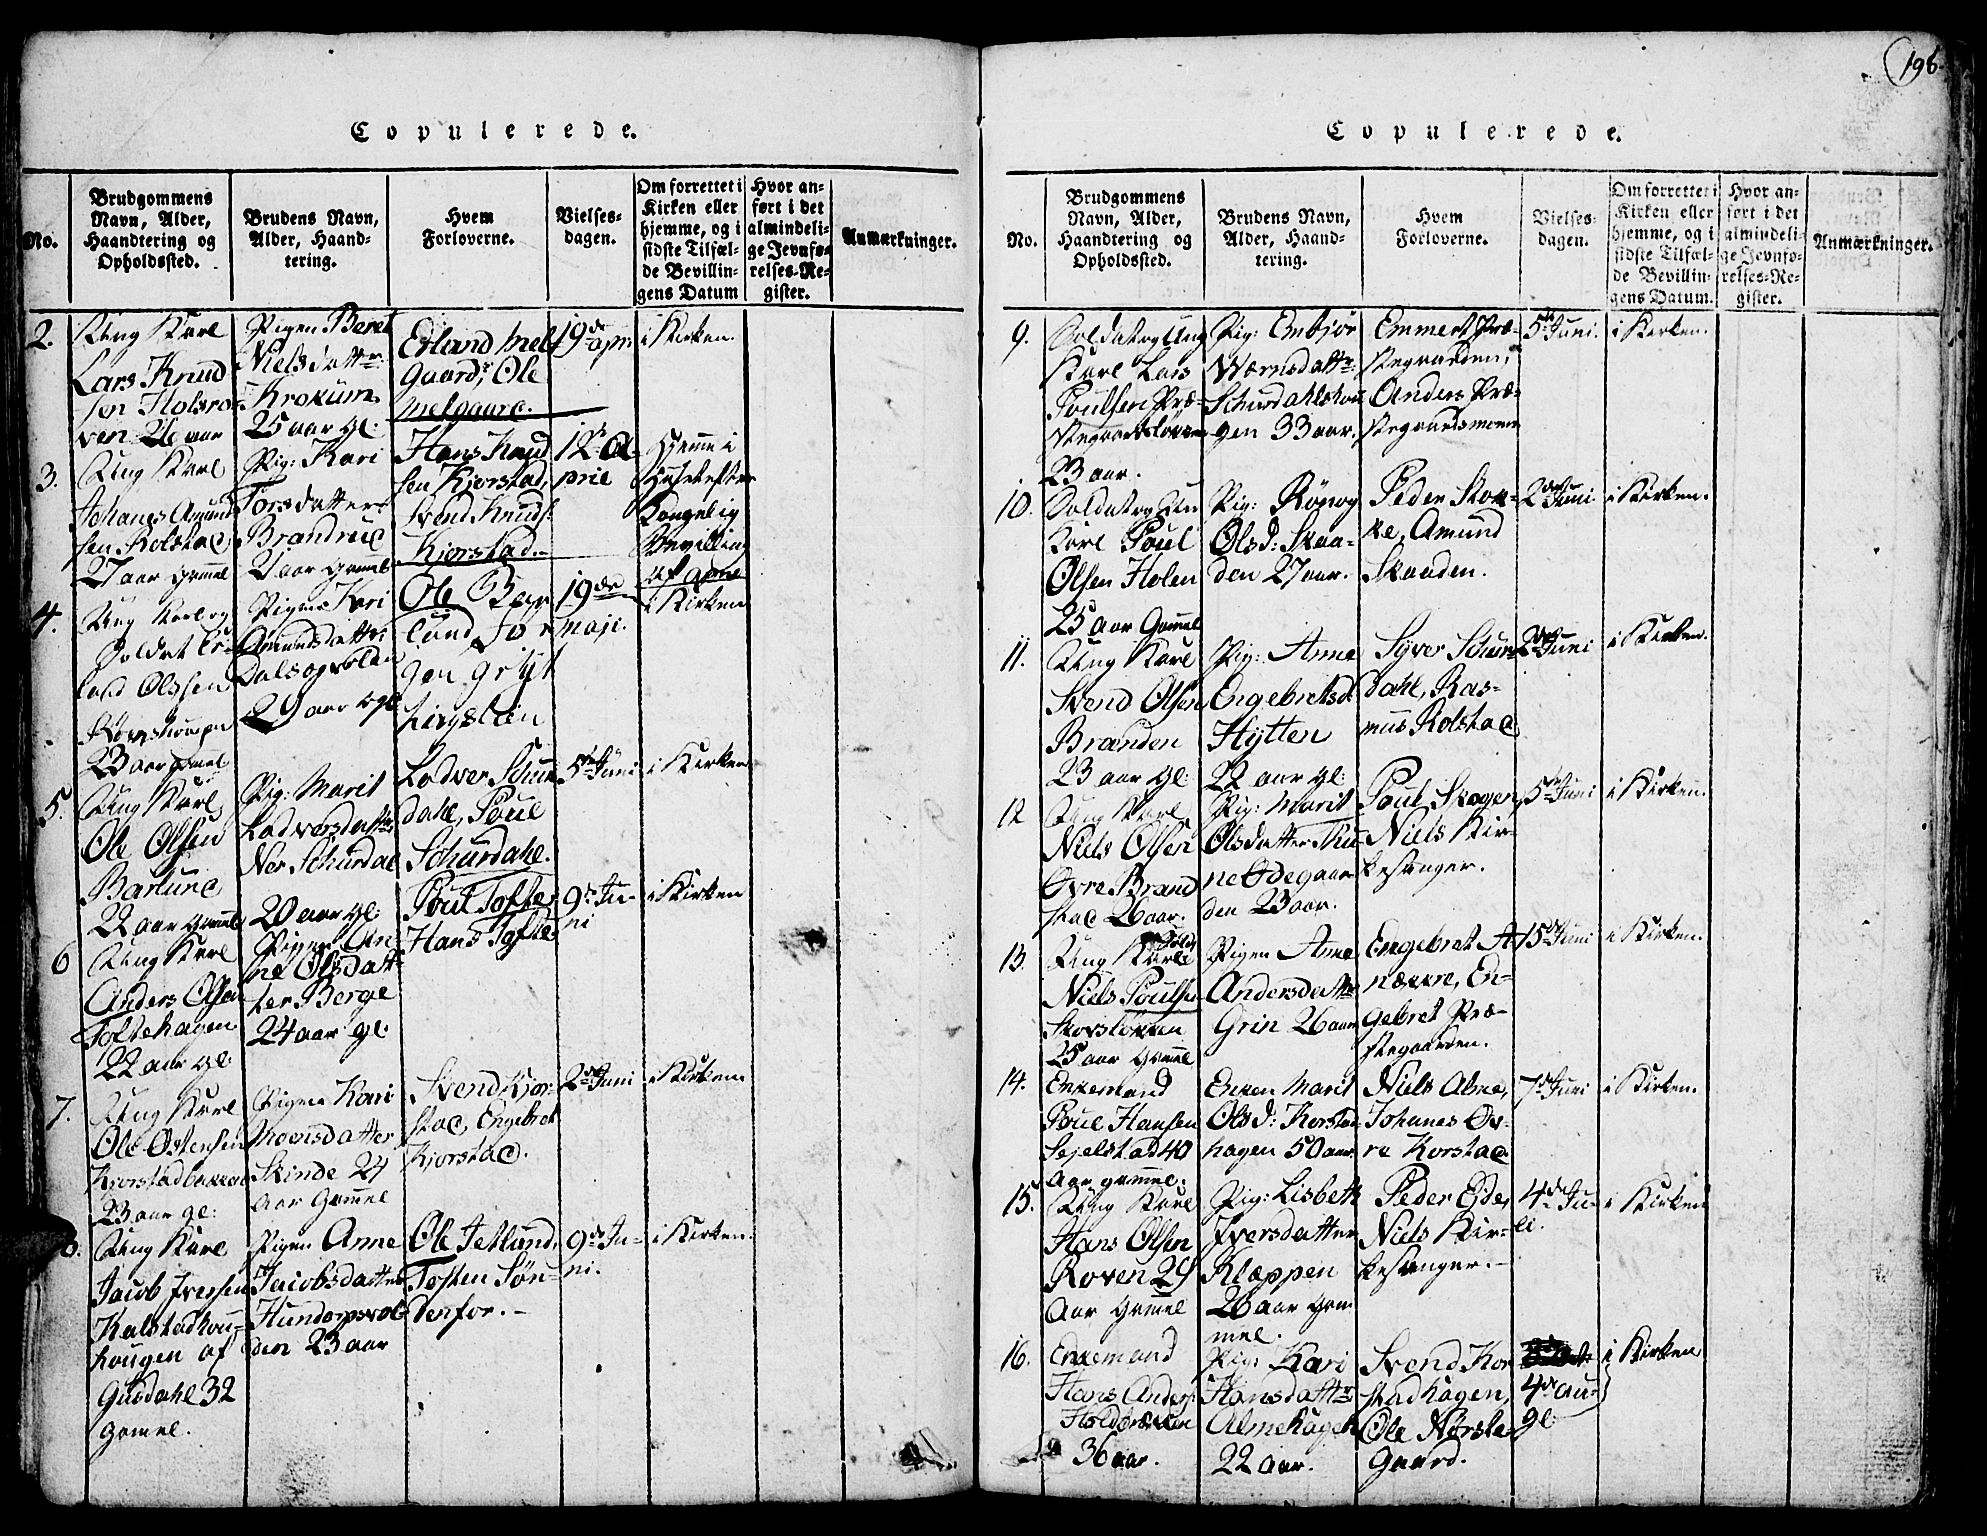 198.
Copulerede.
No.
Brudgommens
Navn, Alder,
Haandtering og
Opholdssted.
Brudens Navn,
Alder, Haand-
tering.
Hvem
Forloverne.
Vielses-
dagen.
Om forrettet i
Kirken eller
hjemme, og i
sidste Tilfæl-
de Bevillin-
gens Datum
Hvor an-
ført i det
almindeli-
ge Jevnfø-
relses-Re-
gister.
Anmærkninger.
2.
Ung Karl
Lars Knud
sen Holsro-
ven 26 aar
Pigen Beret
Nielsdattr
Krokum
25 aar gl:
Erland Mel
gaard, Ole
Melgaard.
19de Apr:
i Kirken.
3.
Ung Karl
Johanes Amund
sen Rolstad
27 aar gamel
Pig: Kari
Torsdatter
Brandrud
21 aar gamel
Hans Knud
sen Kjorstad,
Svend Knuds:
Kjorstad.
12te A
pril
Hjemme i
Huset efter
Kongelig
Bevilling
af
4.
Ung Karl og
Soldat Er
land Olssen
23 aar gamel
Pigen Kari
Amundsdatter
29 aar gl
Ole Berg
lund, Jor
gen Gryt
tingslien
19de
Maji.
i Kirken
5.
Ung Karl
Ole Olsen
Barlund
22 aar gamel
Pig: Marit
Lodversdatter
Ner Schurdal
20 aar gl:
Lodver Schur
dahl, Poul
Schurdahl.
5te Juni
i Kirken
6
Ung Karl
Anders Olsen
Toftehagen
22 aar gl:
Pigen An
ne Olsdat-
ter Berge
24 aar gl:
Poul Tofte,
Hans Tofte.
9de Ju-
ni
i Kirken
7.
Ung Karl
Ole Ostensen
Kjorstadbakken
23 aar gl:
Pigen Kari
Moensdatter
Skinde 24
aar Gamel
Svend Kjor-
stad, Engebret
Kjorstad.
2den Juni
i Kirken
8.
Ung Karl
Jacob Iversen
Kalstadhou-
hougen af
Gusdahl 32
gamel.
Pigen Anne
Jacobsdatter
Hundorpsvol-
den 23 aar
Ole Jetlund,
Tosten Søn-
denfor.
9de Ju-
ni.
i Kirken.
Copulerede.
No.
Brudgommens
Navn, Alder,
Haandtering og
Opholdssted.
Brudens Navn,
Alder, Haand-
tering.
Hvem
Forloverne.
Vielses-
dagen.
Om forrettet i
Kirken eller
hjemme, og i
sidste Tilfæl-
de Bevillin-
gens Datum.
Hvor an-
ført i det
almindeli-
ge Jevnfø-
relses-Re-
gister.
Anmærkninger.
9.
Soldat og Ung
Karl Lars
Poulsen Præ-
stegaardsløkken
23 aar.
Pig: Embjør
Wærnsdattr
Schurdahlshou
gen 33 aar.
Emmert Præ-
stegaarden,
Anders Præ-
stegaardsmoen
5te Juni.
i Kirken.
10.
Soldat og Un
Karl Poul
Olsen Holen
25 aar Gamel
Pig: Rønog
Olsd: Skaa-
den 27 aar.
Peder Skok-
ke, Amund
Skaaden.
2den Juni
i Kirken.
11.
Ung Karl
Svend Olsen
Brænden
23 aar gl:
Pig: Anne
Engebretsd:
Hytten
22 aar gl:
Syver Schur
dahl, Ras-
mus Rolstad
2den Juni
i Kirken.
12
Ung Karl
Niels Olsen
Øvre Brand
stad 26 aar.
Pig: Marit
Olsdatter Thu-
ne Ødegaar
den 23 aar.
Poul Skogen,
Niels Kir-
kesanger.
5te Juni
i Kirken.
13.
Ung Karl
Niels Poulsen
Skovsløkken
25 aar gamel
Pigen Anne
Andersdatter
Grin 26 aar
Engebret A
nækre, En-
gebret Præ-
stegaarden.
15de Juni
i Kirken.
14.
Enkemand
Poul Hansen
Sejelstad 40
aar gamel.
Enken Marit
Olsd: Korstad-
hagen 50 aar
Niels Alme,
Johanes Øv-
re Korstad
7de Juni
i Kirken.
15.
Ung Karl
Hans Olsen
Roven 29
aar gamel
Pig: Lisbeth
Iversdatter
Klæppen
26 aar gam
mel.
Peder Eide,
Niels Kir-
kesanger.
4de Ju-
li.
i Kirken
16.
Enkemand
Hans Anders:
36 aar.
Pig: Kari
Hansdattr
Almehagen
22 aar.
Svend Kor
stadhagen,
Ole Nørste
gaard.
4de Au-
g:
i Kirken